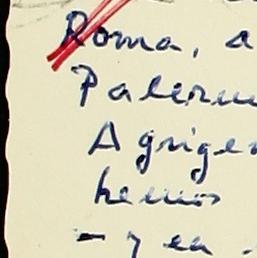 Roma, a
Palerm
Agrigen
hemos
- y en